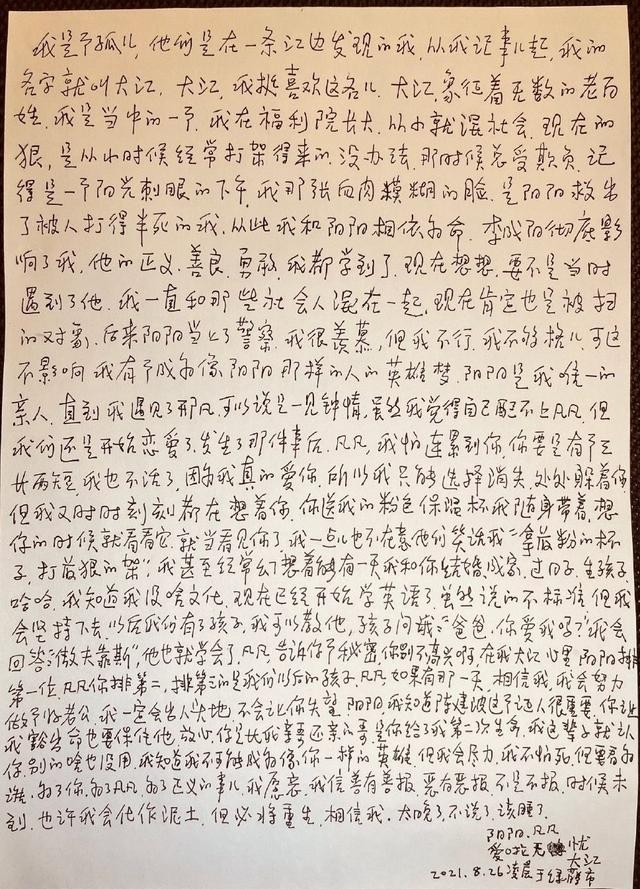 我是个孤儿，他们是在一条江边发现的我，从我记事儿起，我的
名字就叫大江，大江，我挺喜欢这名儿，大江，象征着无数的老百
姓，我是当中的一个，我在福利院长大，从小就混社会，现在的
狠，是从小时候经常打架得来的，没办法，那时候总受欺负，记
得是一个阳光刺眼的下午，我那张血肉模糊的脸，是阳阳救出
了被人打得半死的我，从此我和阳阳相依为命，李成阳彻底影
响了我，他的正义，善良，勇敢，我都学到了，现在想想，要不是当时
遇到了他，我一直和那些社会人混在一起，现在肯定也是被扫
的对象，后来阳阳当上了警察，我很羡慕，但我不行，我不够格儿，可这
不影响我有个成为像阳阳那样的人的英雄梦，阳阳是我唯一的
亲人，直到我遇见了邢凡，可以说是一见钟情，虽然我觉得自己配不上凡凡，但
我们还是开始恋爱了，发生了那件事后，凡凡，我怕连累到你，你要是有个三
长两短，我也不活了，因为我真的爱你，所以我只能选择消失，处处躲着你
但我又时时刻刻都在想着你，你送我的粉色保温杯我随身带着，想
你的时候就看看它，就当看见你了，我一点儿也不在意他们笑话我"拿最粉的杯
子，打最狠的架"，我甚至经常幻想着能有一天我和你结婚，成家，过日子，生孩子
哈哈，我知道我没啥文化，现在已经开始学英语了，虽然说的不标准，但我
会坚持下去，以后我们有了孩子，我可以教他，孩子问我："爸爸，你爱我吗？"我会
回答："微夫靠斯"，他也就学会了，凡凡，告诉你个秘密，你别不高兴啊，在我大江心里，阳阳排
第一位，凡凡你排第二，排第三的是我们以后的孩子，凡凡，如果有那一天，相信我，我会努力
做个好老公，我一定会出人头地，不会让你失望，阳阳，我知道陈建波这个证人很重要，你让
我豁出命也要保住他，放心，你是比我亲哥还亲的哥，是你给了我第二次生命，我这辈子就认
你，别的啥也没用，我知道我不可能成为像你一样的英雄，但我会尽力，我不怕死，但要看为
谁，为了你，为了凡凡，为了正义的事儿，我愿意，我信善有善报，恶有恶报，不是不报，时候未
到，也许我会化作泥土，但必将重生，相信我，太晚了，不说了，该睡了，
阳阳，凡凡
爱哒无忧
大江
2021.8.26凌晨于绿藤市